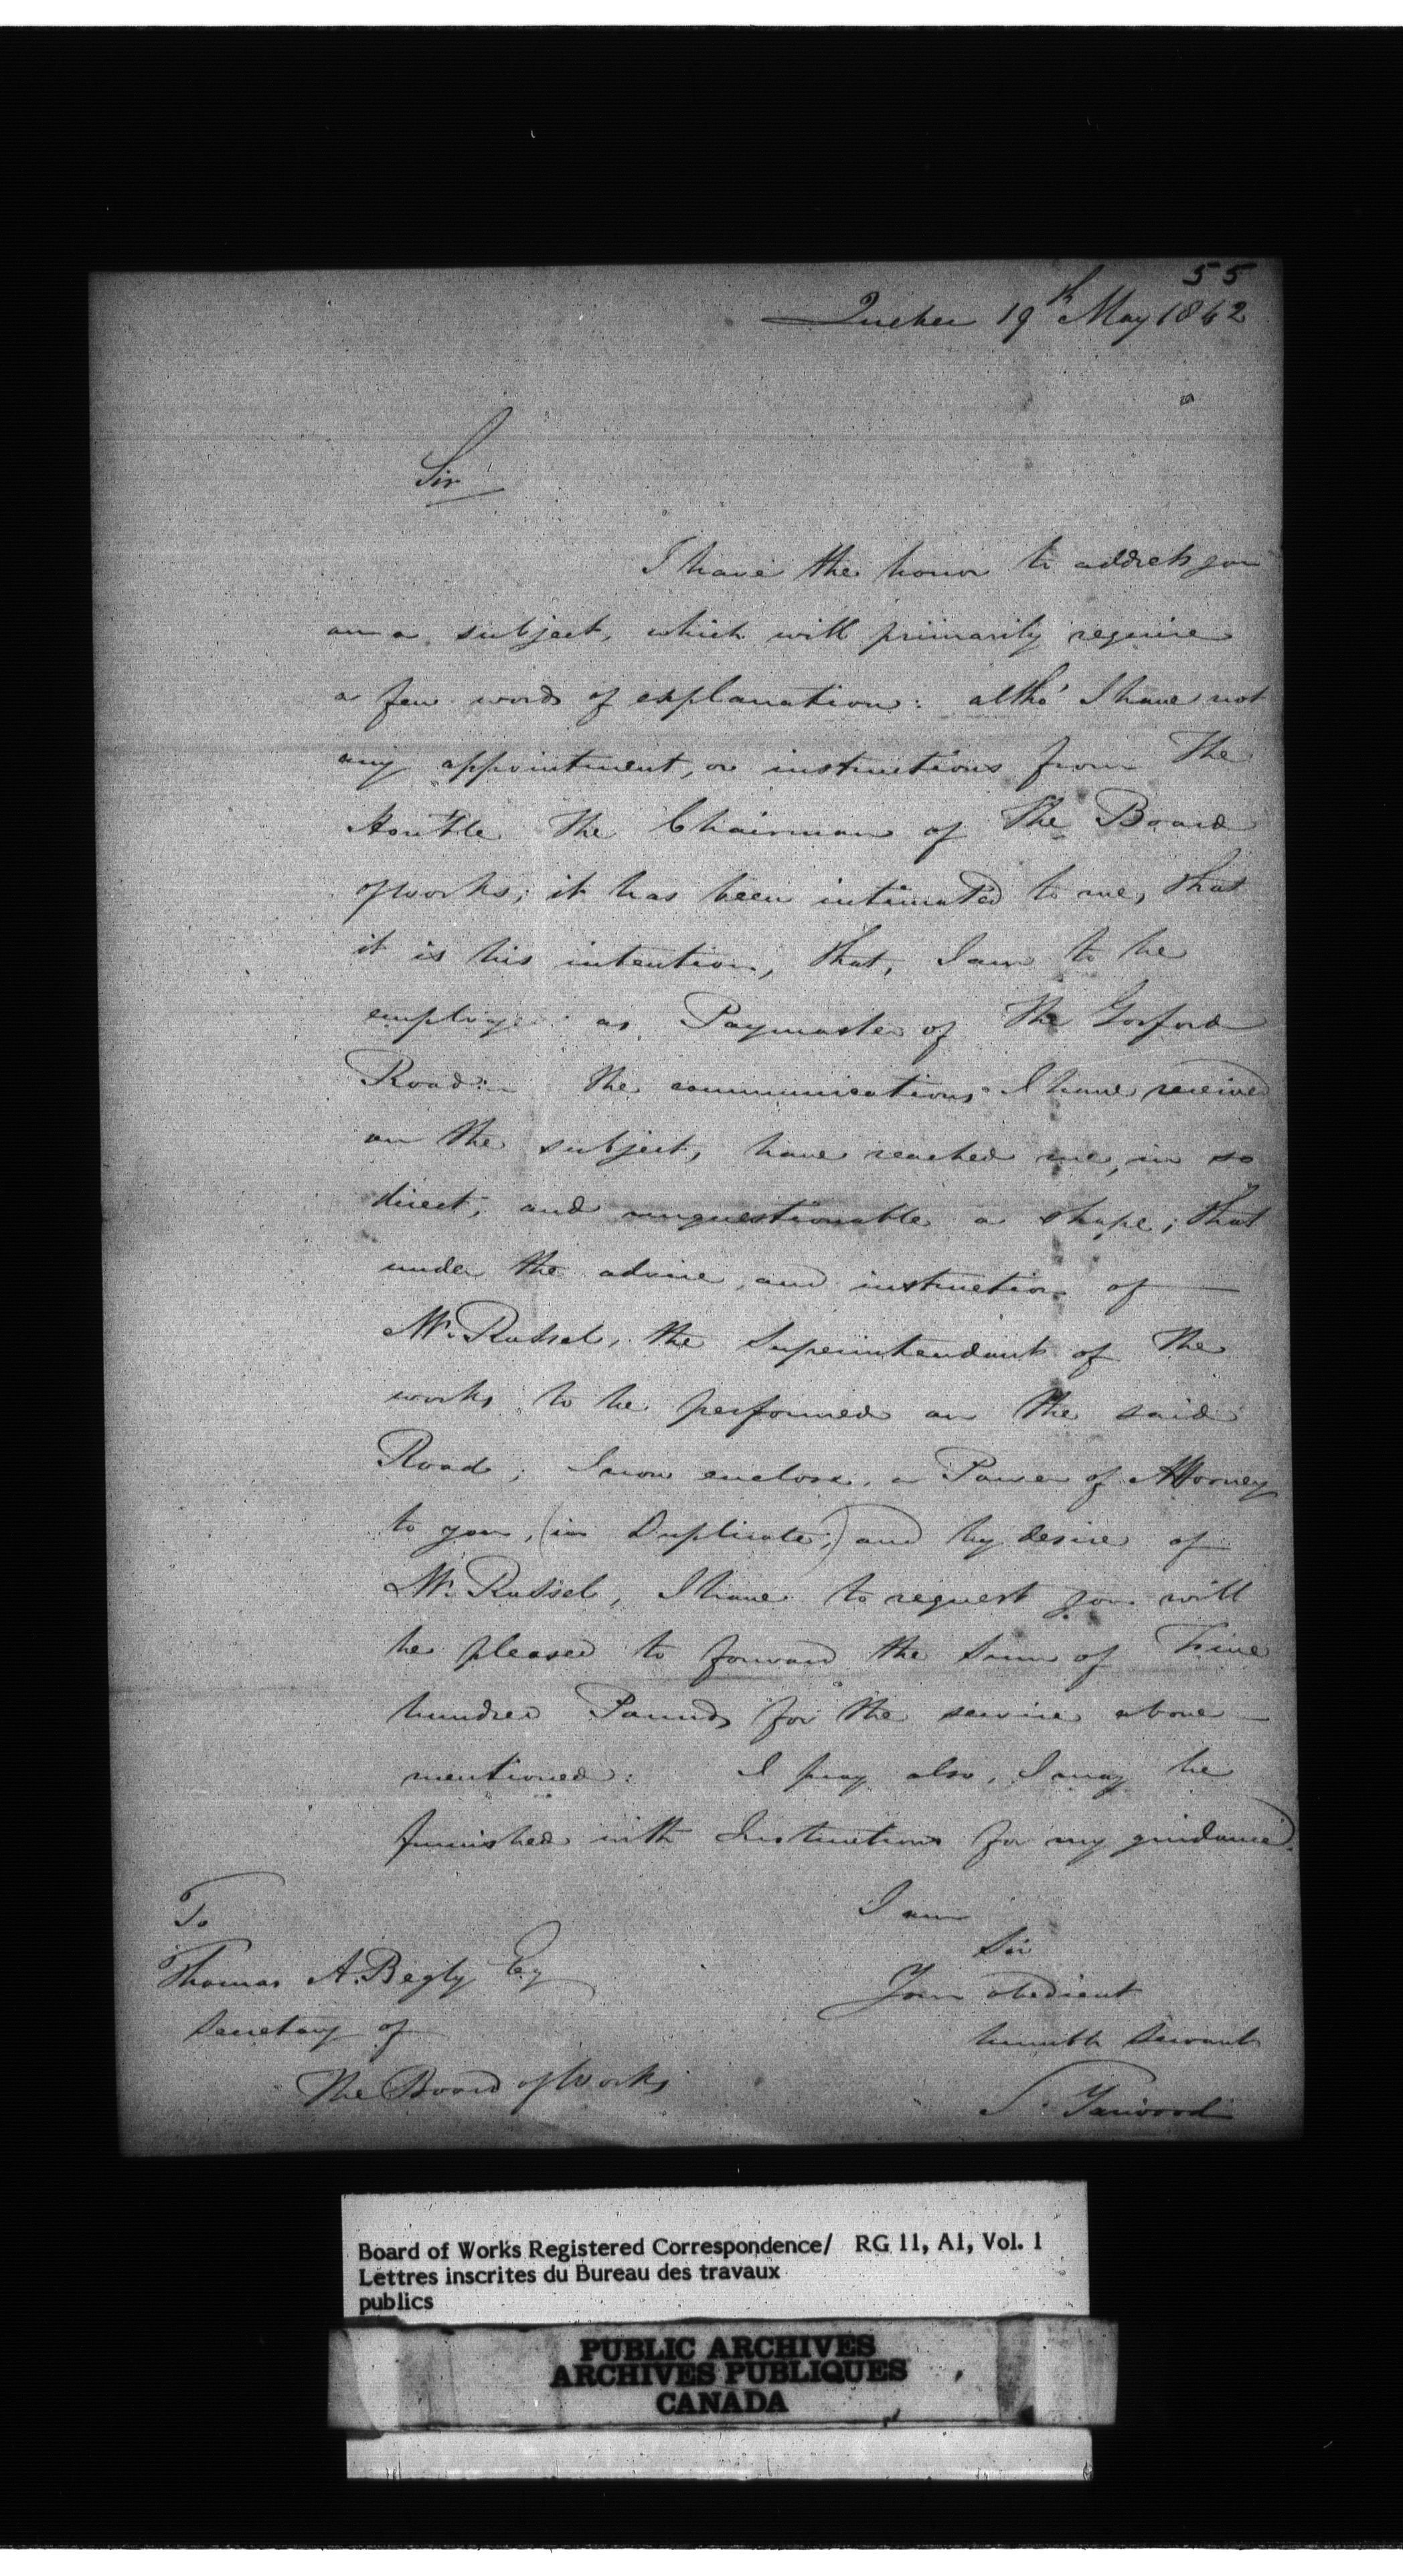 55
Quebec 19th May 1842
Sir
I have the honor to address you
on a subject, which will primarily require
a few words of explanation: altho' I have not
any appointment, or instructions from The
Honble The Chairman of The Board
of Works; it has been intimated to me, that
it is his intention, that, I am to be
employed as Paymaster of The Gosford
Road: the communications I have received
on the subject, have reached me, in so
direct, and unquestionable a shape; that
under the advice, and instruction of
Mr. Russel, the Superintendant of The
works to be performed on the said
Road; I now enclose, a Power of Attorney
to you, (in Duplicate,) and by desire of
Mr. Russel, I have to request you will
be pleased to forward the Sum of Five
hundred Pounds for the service above
mentioned: I pray also, I may be
furnished with Instructions for my guidance.
I am
Sir
Your obedient
humble Servant
S. Yarwood
To
Thomas A. Begly Esq
Secretary of
The Board of Works
Board of Works Registered Correspondence/ RG 11, A1, Vol. 1
Lettres inscrites du Bureau des travaux
publics
PUBLIC ARCHIVES
ARCHIVES PUBLIQUES
CANADA